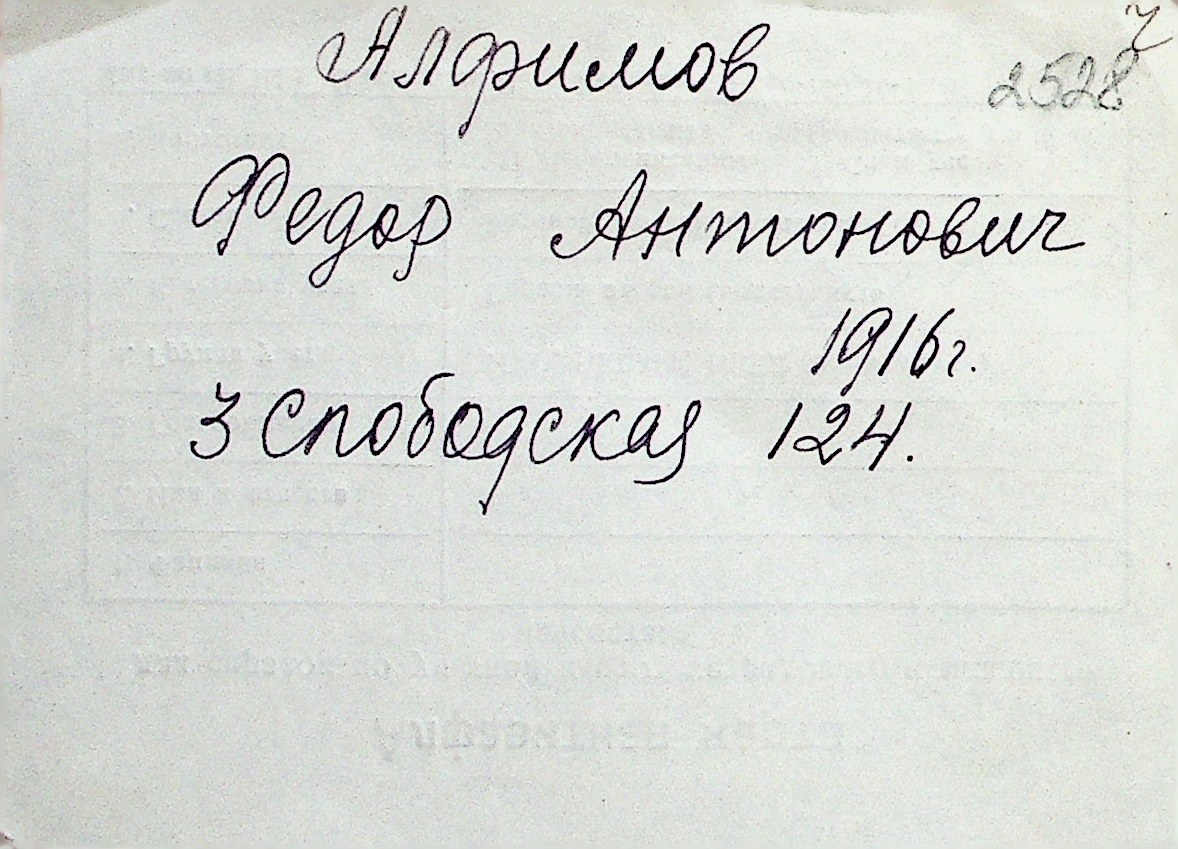 Алфимов
2528
Федор Антонович
1916г.
3 Слободская 124.